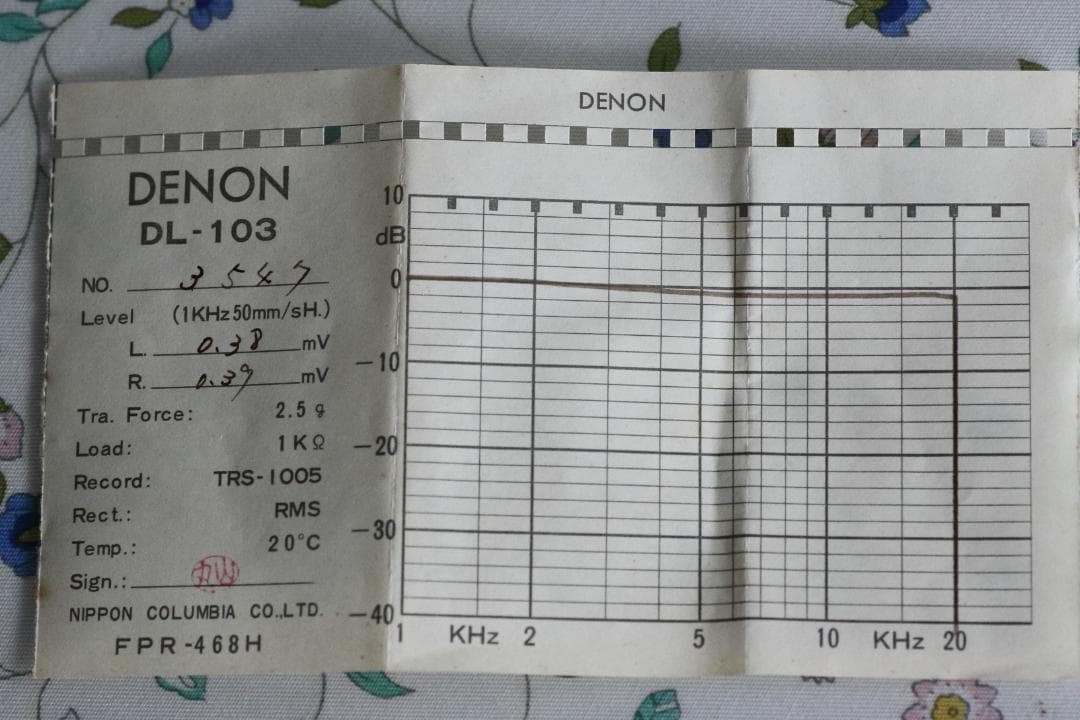 DENON
DENON
DL-103
NO. 3547
Level (1KHz 50mm/sH.)
L. 0.38 mV
R. 0.39 mV
Tra. Force: 2.5 g
Load: 1KΩ
Record: TRS-1005
Rect.: RMS
Temp.: 20°C
Sign.: 丸山
NIPPON COLUMBIA CO.,LTD.
FPR-468H
10
dB
0
-10
-20
-30
-40
1 KHz 2 5 10 KHz 20